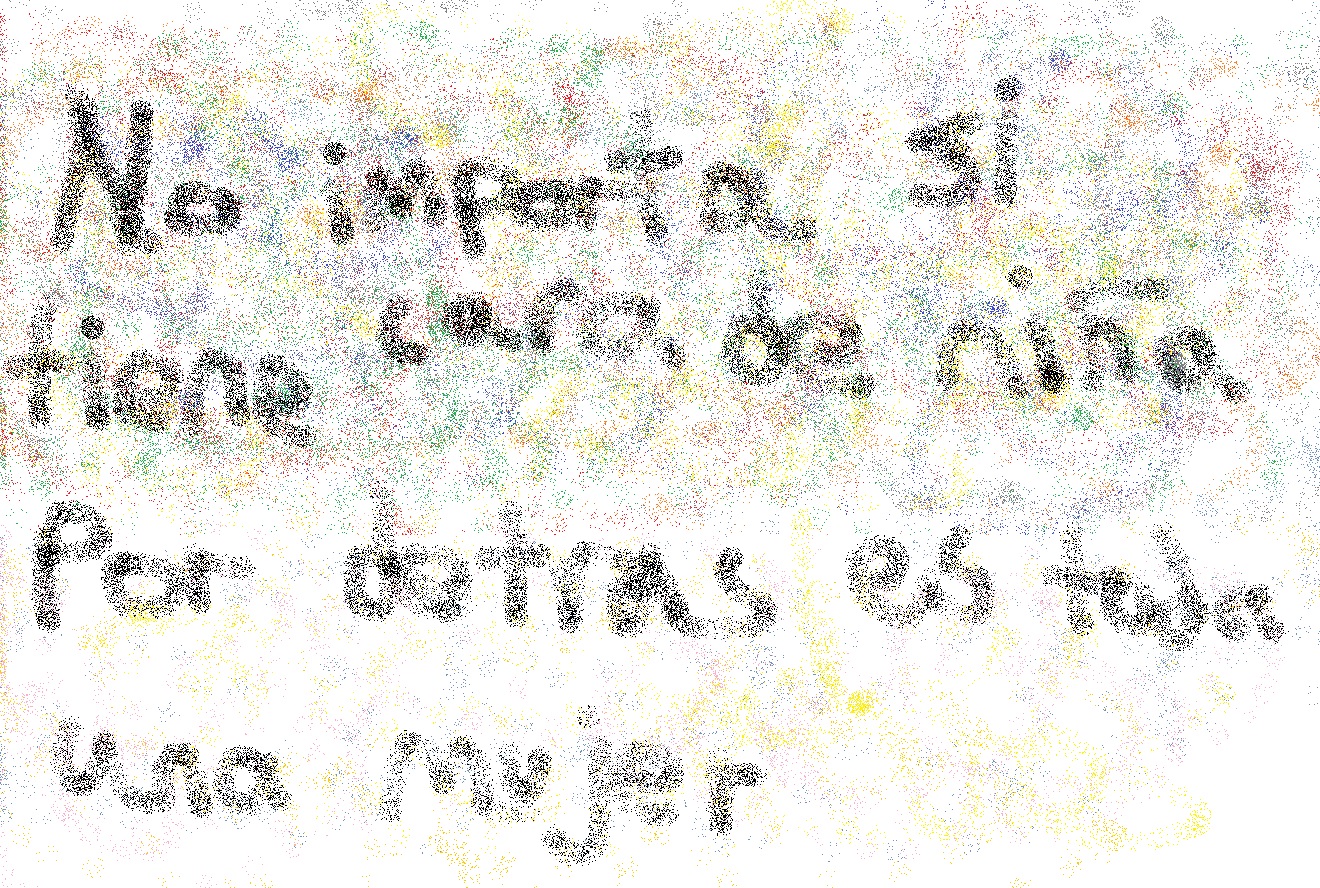 No importa si
tiene cara de niña
Por detras es toda
una mujer